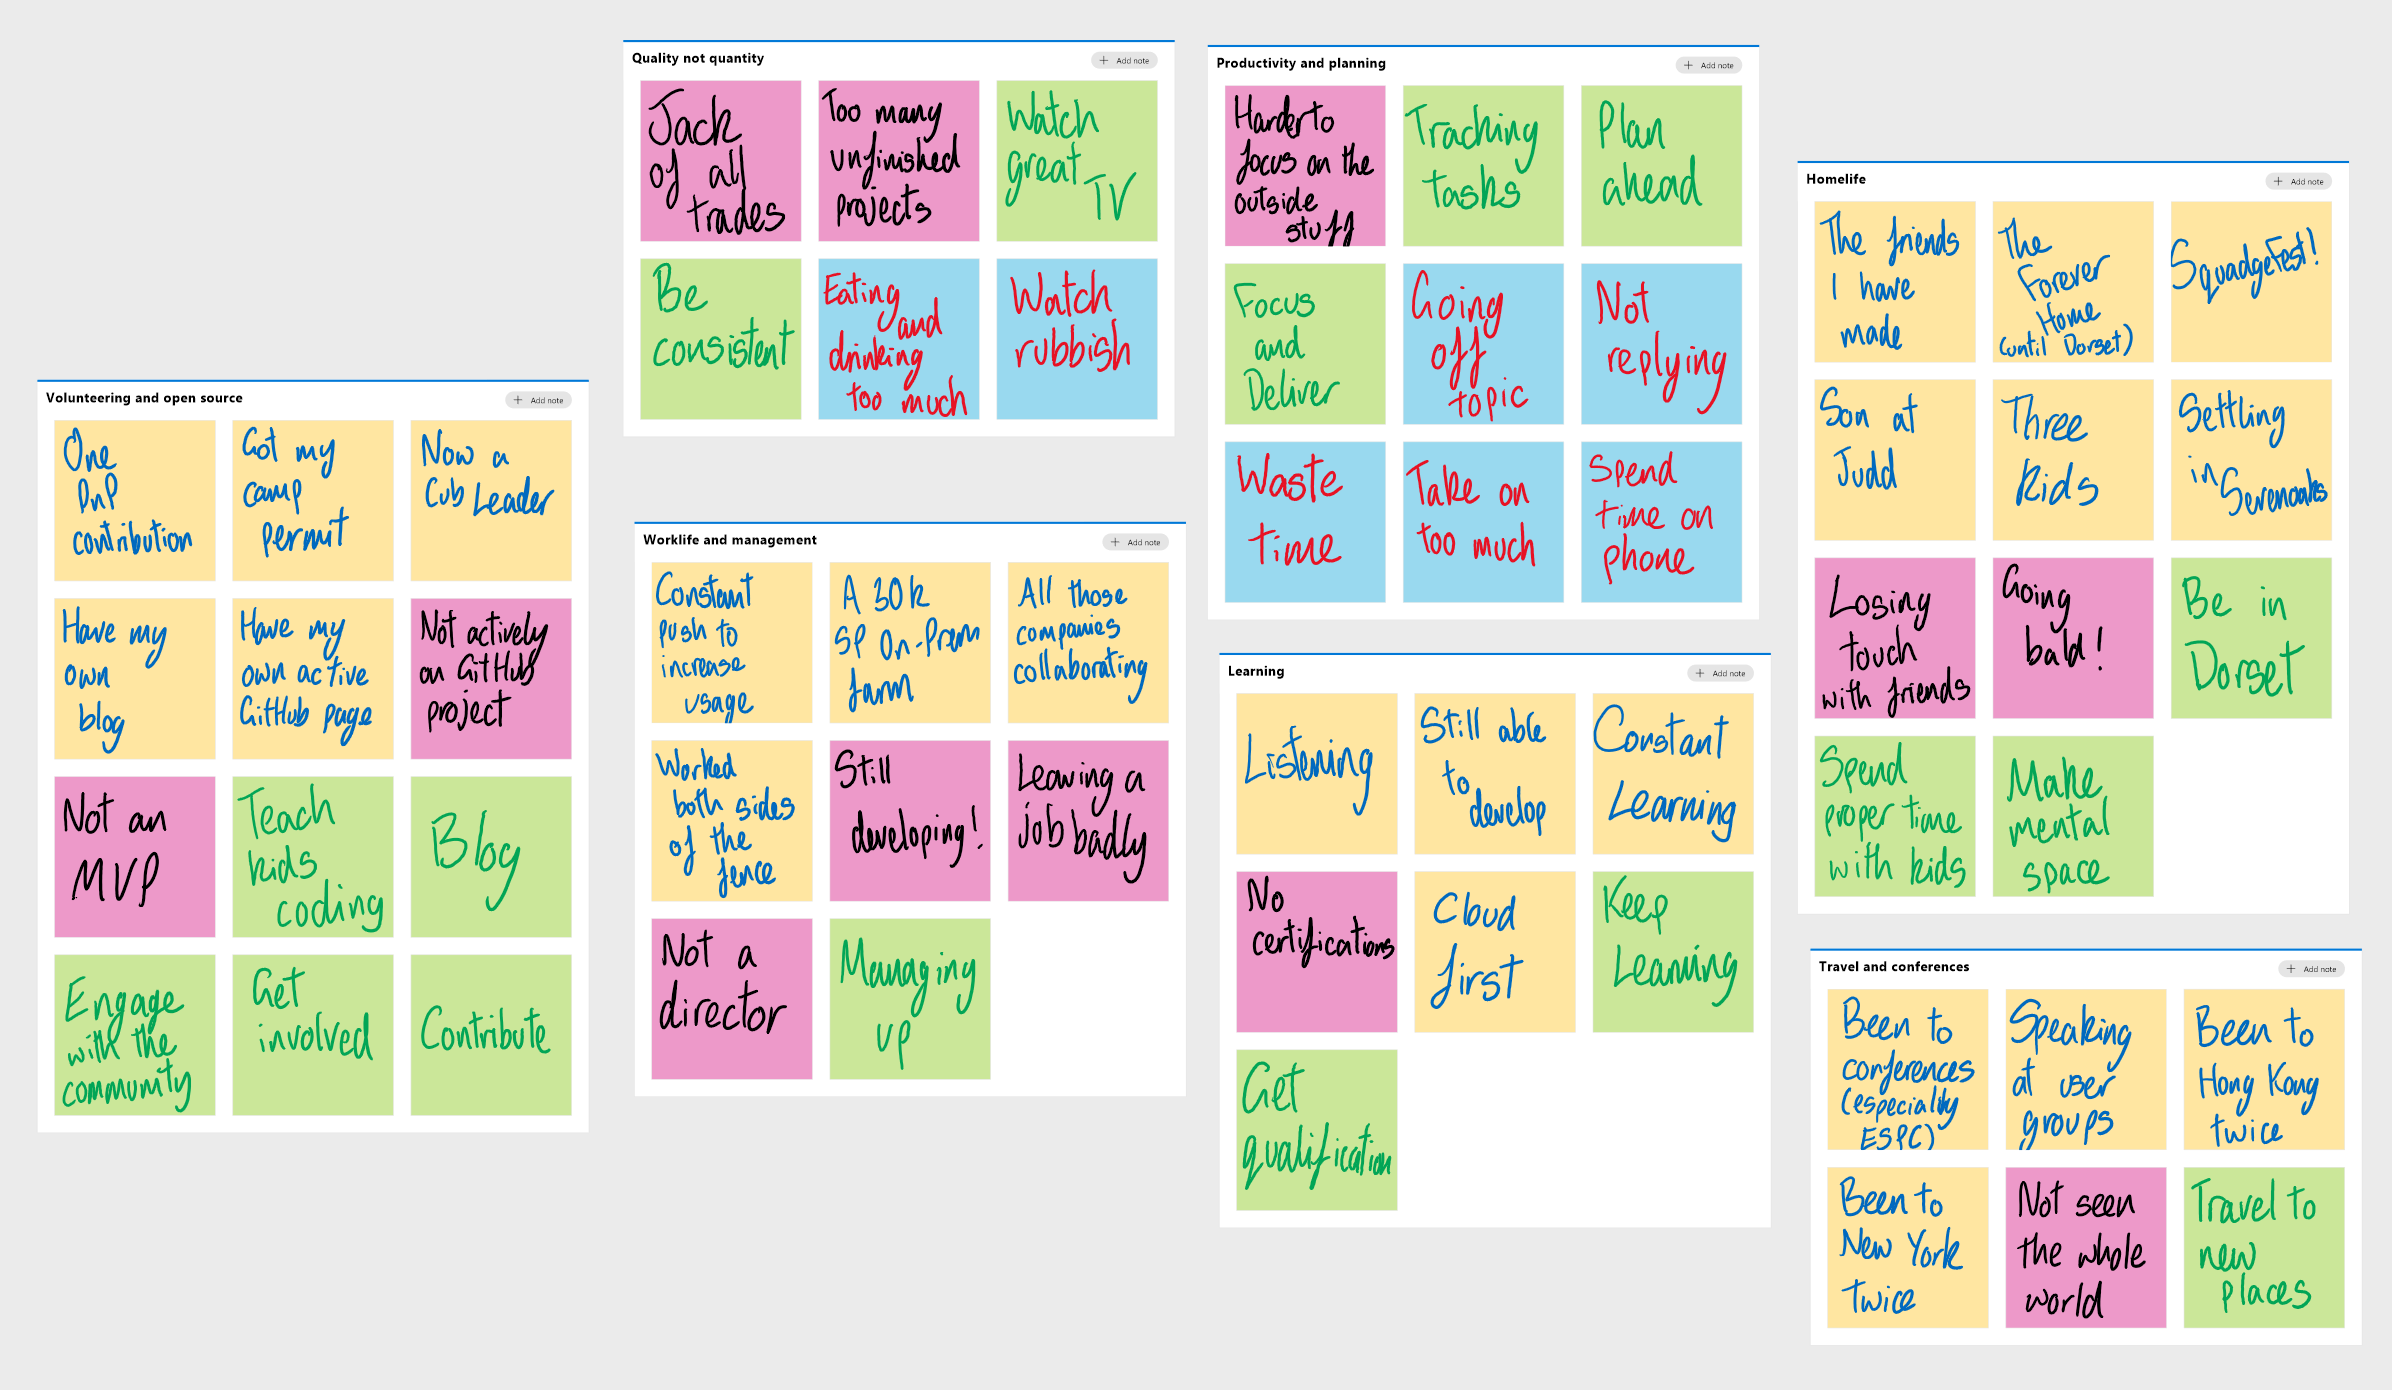 Volunteering and open source
+ Add note
One
PnP
contribution
Got my
camp
permit
Now a
Cub Leader
Have my
own
blog
Have my
own active
GitHub page
Not actively
on GitHub
project
Not an
MVP
Teach
kids
coding
Blog
Engage
with the
community
Get
involved
Contribute
Quality not quantity
+ Add note
Jack
of all
trades
Too many
unfinished
projects
Watch
great
TV
Be
consistent
Eating
and
drinking
too much
Watch
rubbish
Worklife and management
+ Add note
Constant
push to
increase
usage
A 30k
SP On-Prem
farm
All those
companies
collaborating
Worked
both sides
of the
fence
Still
developing!
Leaving a
job badly
Not a
director
Managing
up
Productivity and planning
+ Add note
Harder to
focus on the
outside
stuff
Tracking
tasks
Plan
ahead
Focus
and
Deliver
Going
off
topic
Not
replying
Waste
time
Take on
too much
Spend
time on
phone
Learning
+ Add note
Listening
Still able
to
develop
Constant
Learning
No
certifications
Cloud
first
Keep
Learning
Get
qualification
Homelife
+ Add note
The friends
I have
made
The
Forever
Home
(until Dorset)
SquadgeFest!
Son at
Judd
Three
kids
Settling
in
Sevenoaks
Losing
touch
with friends
Going
bald!
Be in
Dorset
Spend
proper time
with kids
Make
mental
space
Travel and conferences
+ Add note
Been to
conferences
(especially
ESPC)
Speaking
at user
groups
Been to
Hong Kong
twice
Been to
New York
twice
Not seen
the whole
world
Travel to
new
places